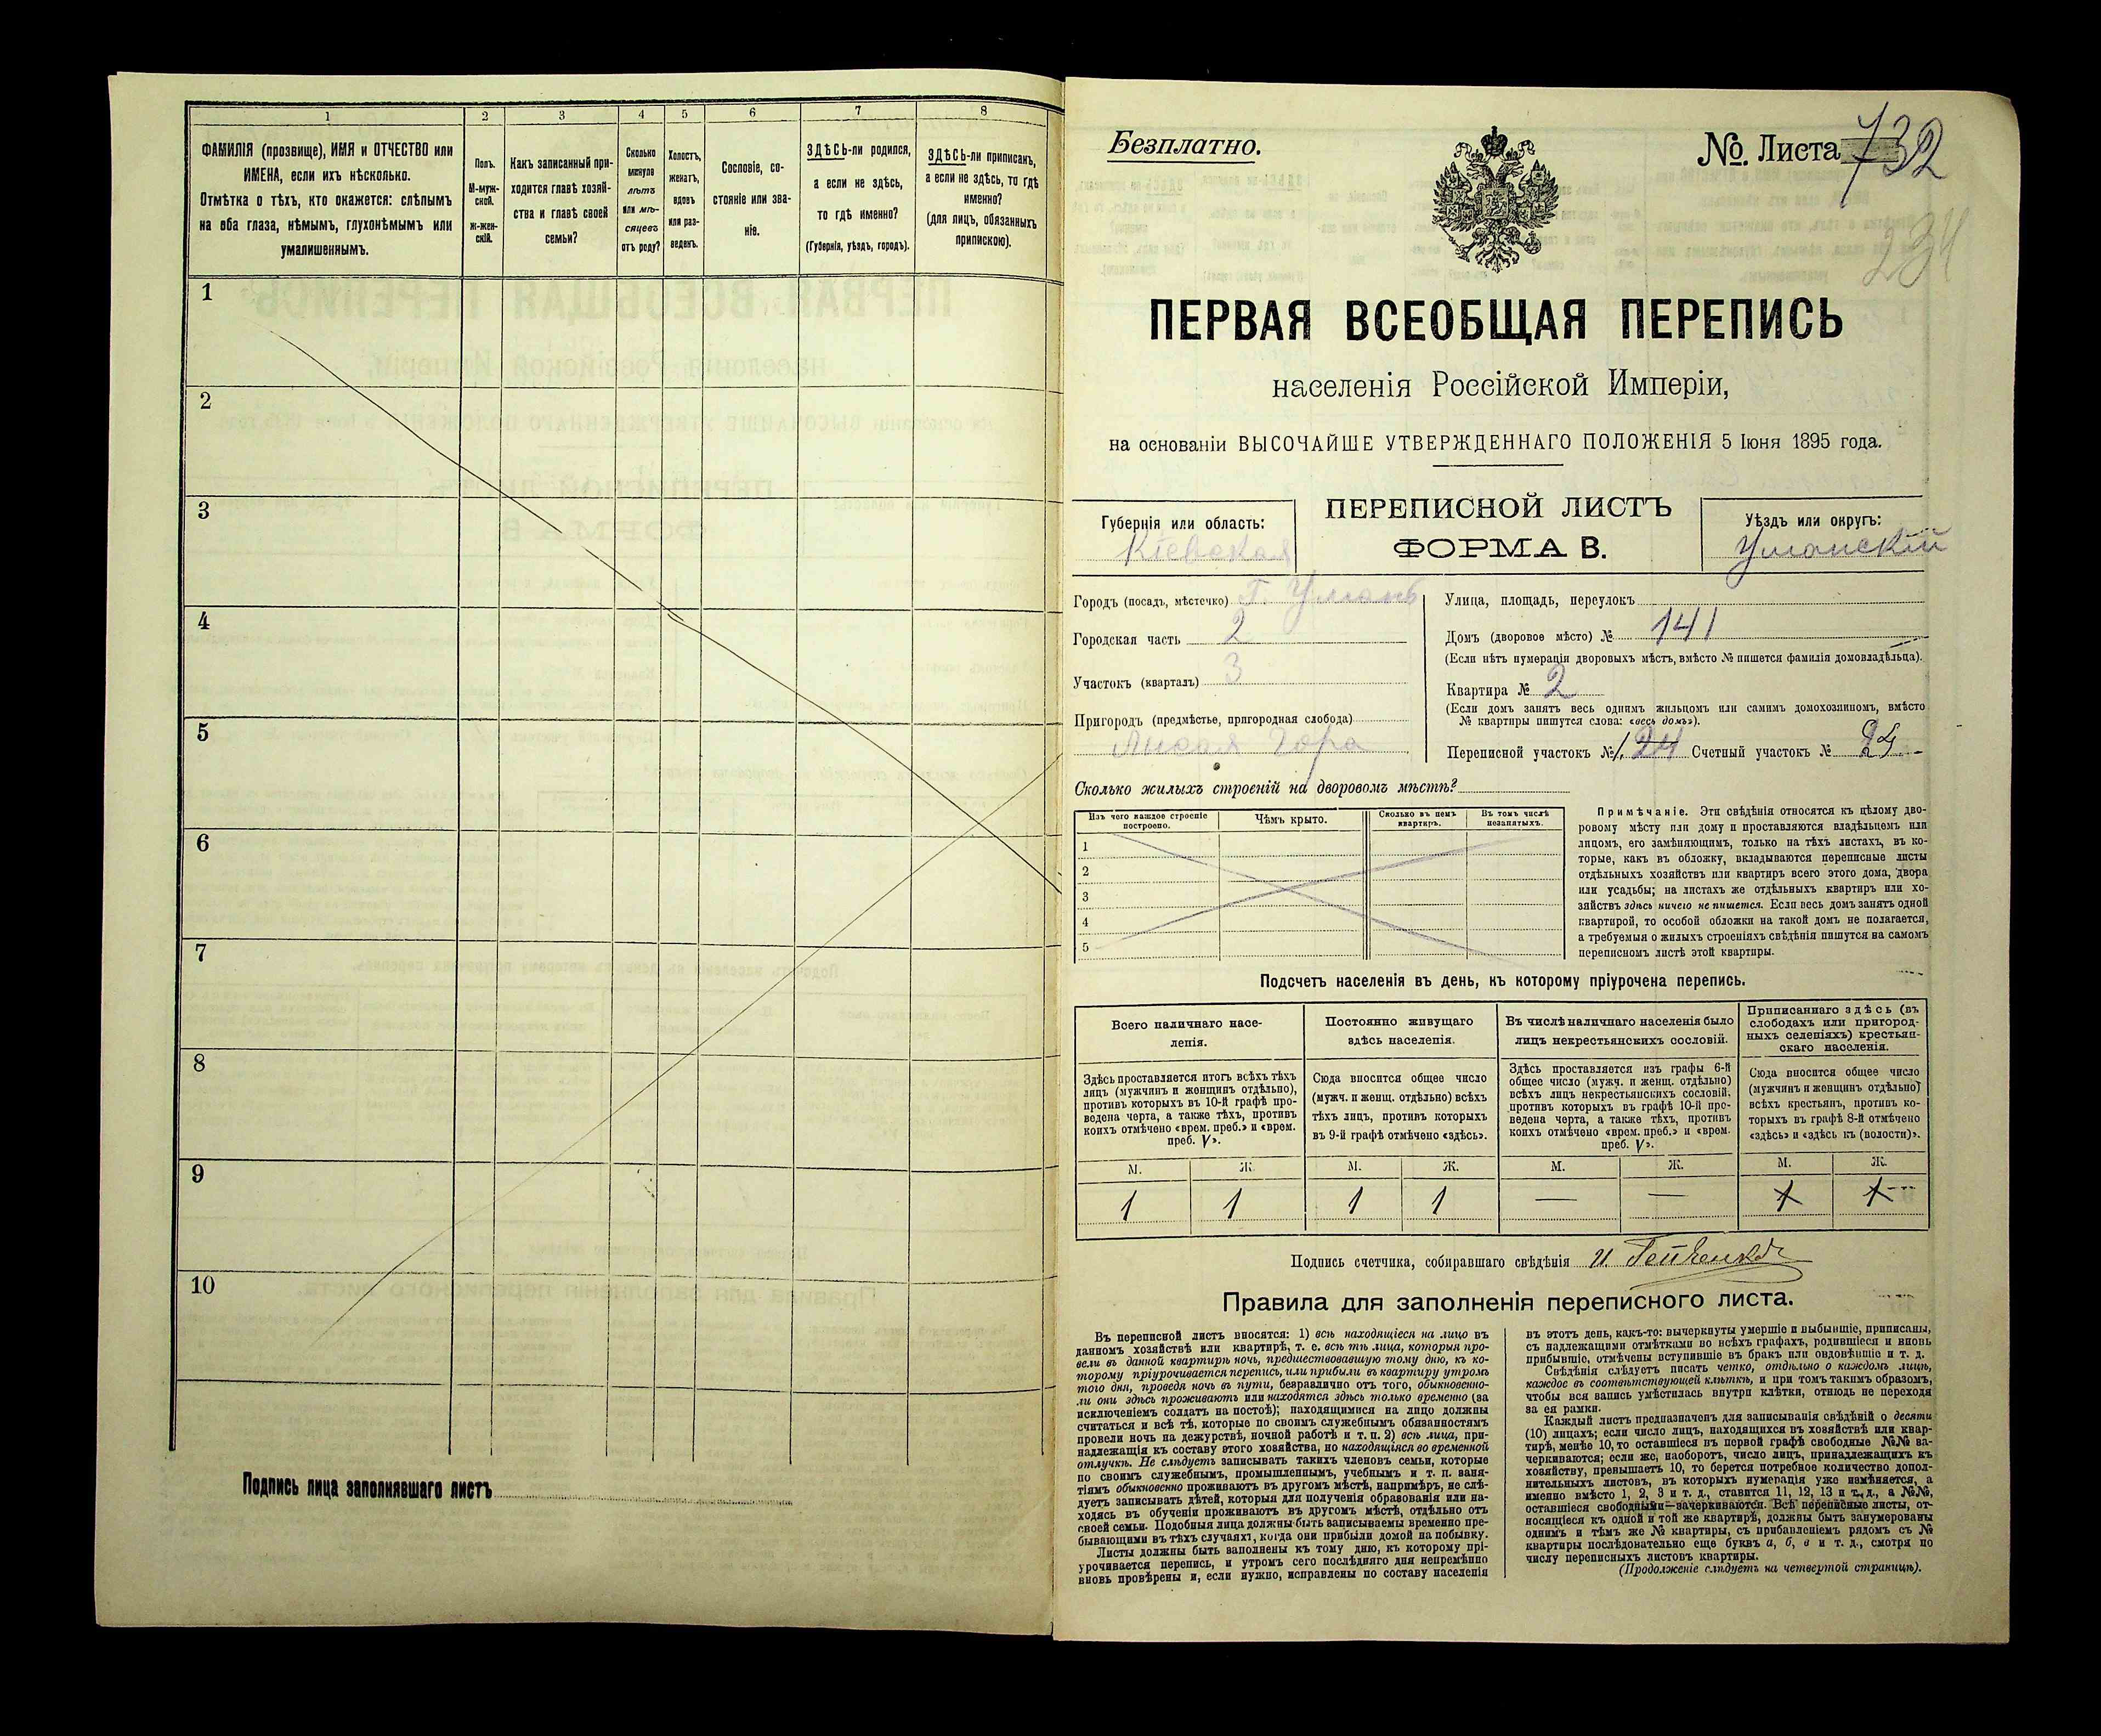 1 2 3 4 5 6 7 8
ФАМИЛІЯ (прозвище), ИМЯ и ОТЧЕСТВО или
ИМЕНА, если ихъ нѣсколько.
Отмѣтка о тѣхъ, кто окажется: слѣпымъ
на оба глаза, нѣмымъ, глухонѣмымъ или
умалишеннымъ.
Полъ.
М-муж-
ской.
Ж-жен-
скій.
Какъ записанный при-
ходится главѣ хозяй-
ства и главѣ своей
семьи?
Сколько
минуло
лѣтъ
или мѣ-
сяцевъ
отъ роду?
Холостъ,
женатъ,
вдовъ
или раз-
веденъ.
Сословіе, со-
стояніе или зва-
ніе.
ЗДѢСЬ-ли родился,
а если не здѣсь,
то гдѣ именно?
(Губернія, уѣздъ, городъ).
ЗДѢСЬ-ли приписанъ,
а если не здѣсь, то гдѣ
именно?
(для лицъ, обязанныхъ
припискою).
1
2
3
4
5
6
7
8
9
10
Подпись лица заполнявшаго листъ
Безплатно.
№. Листа 732
234
ПЕРВАЯ ВСЕОБЩАЯ ПЕРЕПИСЬ
населенія Россійской Имперіи,
на основаніи ВЫСОЧАЙШЕ УТВЕРЖДЕННАГО ПОЛОЖЕНІЯ 5 Іюня 1895 года.
Губернія или область:
Кіевская
ПЕРЕПИСНОЙ ЛИСТЪ
ФОРМА В.
Уѣздъ или округъ:
Уманскій
Городъ (посадъ, мѣстечко) Г. Умань
Городская часть 2
Участокъ (кварталъ) 3
Пригородъ (предмѣстье, пригородная слобода)
Лысая Гора
Улица, площадь, переулокъ
Домъ (дворовое мѣсто) № 141
(Если нѣтъ нумераціи дворовыхъ мѣстъ, вмѣсто № пишется фамилія домовладѣльца).
Квартира № 2
(Если домъ занятъ весь однимъ жильцомъ или самимъ домохозяиномъ, вмѣсто
№ квартиры пишутся слова: «весь домъ»).
Переписной участокъ № 1. Счетный участокъ №
Сколько жилыхъ строеній на дворовомъ мѣстѣ?
Изъ чего каждое строеніе
построено.
Чѣмъ крыто.
Сколько въ немъ
квартиръ.
Въ томъ числѣ
незанятыхъ.
1
2
3
4
5
Примѣчаніе. Эти свѣдѣнія относятся къ цѣлому дво-
ровому мѣсту или дому и проставляются владѣльцемъ или
лицомъ, его замѣняющимъ, только на тѣхъ листахъ, въ ко-
торые, какъ въ обложку, вкладываются переписные листы
отдѣльныхъ хозяйствъ или квартиръ всего этого дома, двора
или усадьбы; на листахъ же отдѣльныхъ квартиръ или хо-
зяйствъ здѣсь ничего не пишется. Если весь домъ занятъ одной
квартирой, то особой обложки на такой домъ не полагается,
а требуемыя о жилыхъ строеніяхъ свѣдѣнія пишутся на самомъ
переписномъ листѣ этой квартиры.
Подсчетъ населенія въ день, къ которому пріурочена перепись.
Всего наличнаго насе-
ленія.
Постоянно живущаго
здѣсь населенія.
Въ числѣ наличнаго населенія было
лицъ некрестьянскихъ сословій.
Приписаннаго здѣсь (въ
слободахъ или пригород-
ныхъ селеніяхъ) крестьян-
скаго населенія.
Здѣсь проставляется итогъ всѣхъ тѣхъ
лицъ (мужчинъ и женщинъ отдѣльно),
противъ которыхъ въ 10-й графѣ про-
ведена черта, а также тѣхъ, противъ
коихъ отмѣчено «врем. преб.» и «врем.
преб. V».
Сюда вносится общее число
(мужч. и женщ. отдѣльно) всѣхъ
тѣхъ лицъ, противъ которыхъ
въ 9-й графѣ отмѣчено «здѣсь».
Здѣсь проставляется изъ графы 6-й
общее число (мужч. и женщ. отдѣльно)
всѣхъ лицъ некрестьянскихъ сословій,
противъ которыхъ въ графѣ 10-й про-
ведена черта, а также тѣхъ, противъ
коихъ отмѣчено «врем. преб.» и «врем.
преб. V».
Сюда вносится общее число
(мужчинъ и женщинъ отдѣльно)
всѣхъ крестьянъ, противъ ко-
торыхъ въ графѣ 8-й отмѣчено
«здѣсь» и «здѣсь къ (волости)».
М. Ж. М. Ж. М. Ж. М. Ж.
1 1 1 1 — —
Подпись счетчика, собиравшаго свѣдѣнія И.
Правила для заполненія переписного листа.
Въ переписной листъ вносятся: 1) всѣ находящіеся на лицо въ
данномъ хозяйствѣ или квартирѣ, т. е. всѣ тѣ лица, которыя про-
вели въ данной квартирѣ ночь, предшествовавшую тому дню, къ ко-
торому пріурочивается перепись, или прибыли въ квартиру утромъ
того дня, проведя ночь въ пути, безразлично отъ того, обыкновенно-
ли они здѣсь проживаютъ или находятся здѣсь только временно (за
исключеніемъ солдатъ на постоѣ); находящимися на лицо должны
считаться и всѣ тѣ, которые по своимъ служебнымъ обязанностямъ
провели ночь на дежурствѣ, ночной работѣ и т. п. 2) всѣ лица, при-
надлежащія къ составу этого хозяйства, но находящіяся во временной
отлучкѣ. Не слѣдуетъ записывать такихъ членовъ семьи, которые
по своимъ служебнымъ, промышленнымъ, учебнымъ и т. п. заня-
тіямъ обыкновенно проживаютъ въ другомъ мѣстѣ, напримѣръ, не слѣ-
дуетъ записывать дѣтей, которыя для полученія образованія или на-
ходясь въ обученіи проживаютъ въ другомъ мѣстѣ, отдѣльно отъ
своей семьи. Подобныя лица должны быть записываемы временно пре-
бывающими въ тѣхъ случаяхъ, когда они прибыли домой на побывку.
Листы должны быть заполнены къ тому дню, къ которому прі-
урочивается перепись, и утромъ сего послѣдняго дня непремѣнно
вновь провѣрены и, если нужно, исправлены по составу населенія
въ этотъ день, какъ-то: вычеркнуты умершіе и выбывшіе, приписаны,
съ надлежащими отмѣтками во всѣхъ графахъ, родившіеся и вновь
прибывшіе, отмѣчены вступившіе въ бракъ или овдовѣвшіе и т. д.
Свѣдѣнія слѣдуетъ писать четко, отдѣльно о каждомъ лицѣ,
каждое въ соотвѣтствующей клѣткѣ, и при томъ такимъ образомъ,
чтобы вся запись умѣстилась внутри клѣтки, отнюдь не переходя
за ея рамки.
Каждый листъ предназначенъ для записыванія свѣдѣній о десяти
(10) лицахъ; если число лицъ, находящихся въ хозяйствѣ или квар-
тирѣ, менѣе 10, то оставшіеся въ первой графѣ свободные №№ за-
черкиваются; если же, наоборотъ, число лицъ, принадлежащихъ къ
хозяйству, превышаетъ 10, то берется потребное количество допол-
нительныхъ листовъ, въ которыхъ нумерація уже измѣняется, а
именно вмѣсто 1, 2, 3 и т. д., ставится 11, 12, 13 и т. д., а №№,
оставшіеся свободными—зачеркиваются. Всѣ переписные листы, от-
носящіеся къ одной и той же квартирѣ, должны быть занумерованы
однимъ и тѣмъ же № квартиры, съ прибавленіемъ рядомъ съ №
квартиры послѣдовательно еще буквъ а, б, в и т. д., смотря по
числу переписныхъ листовъ квартиры.
(Продолженіе слѣдуетъ на четвертой страницѣ).